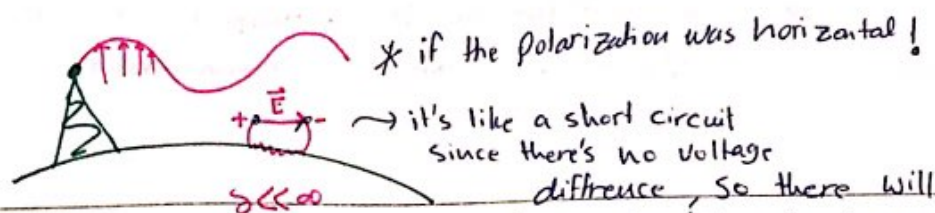 * if the polarization was horizontal!
+ E⃗ -
→ it's like a short circuit
since there's no voltage
diffrence, so there will
<< ∞